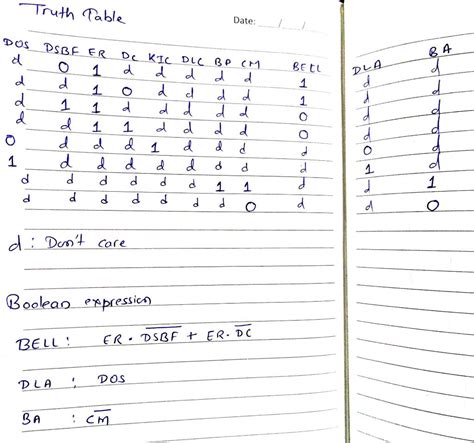 Truth Table
Date: __/__/__
DOS DSBF ER DC KIC DLC BP CM BELL DLA BA
d 0 1 d d d d d 1 d d
d d 1 0 d d d d 1 d d
d 1 1 d d d d d 0 d d
d d 1 1 d d d d 0 d d
0 d d d 1 d d d d 0 d
1 d d d d d d d d 1 d
d d d d d d 1 1 d d 1
d d d d d d d 0 d d 0
d : Don't care
Boolean expression
BELL : ER · D̅S̅B̅F̅ + ER · D̅C̅
DLA : DOS
BA : C̅M̅